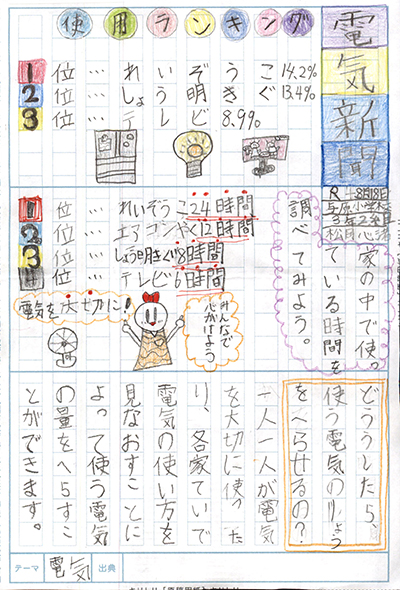 電気新聞
使用ランキング
1位…れいぞうこ14.2%
2位…しょう明きぐ13.4%
3位…テレビ8.9%
R4 8月18日
与原小学校
3年2組
家の中で使っ
ている時間を
調べてみよう。
1位…れいぞうこ24時間
2位…エアコンやく12時間
3位…しょう明きぐ8時間
4位…テレビ6時間
みんなで
心がけよう
電気を大切に!
どうしたら、
使う電気のりょう
をへらせるの?
一人一人が電気
を大切に使った
り、各家ていで
電気の使い方を
見なおすことに
よって使う電気
の量をへらすこ
とができます。
テーマ 電気 出典